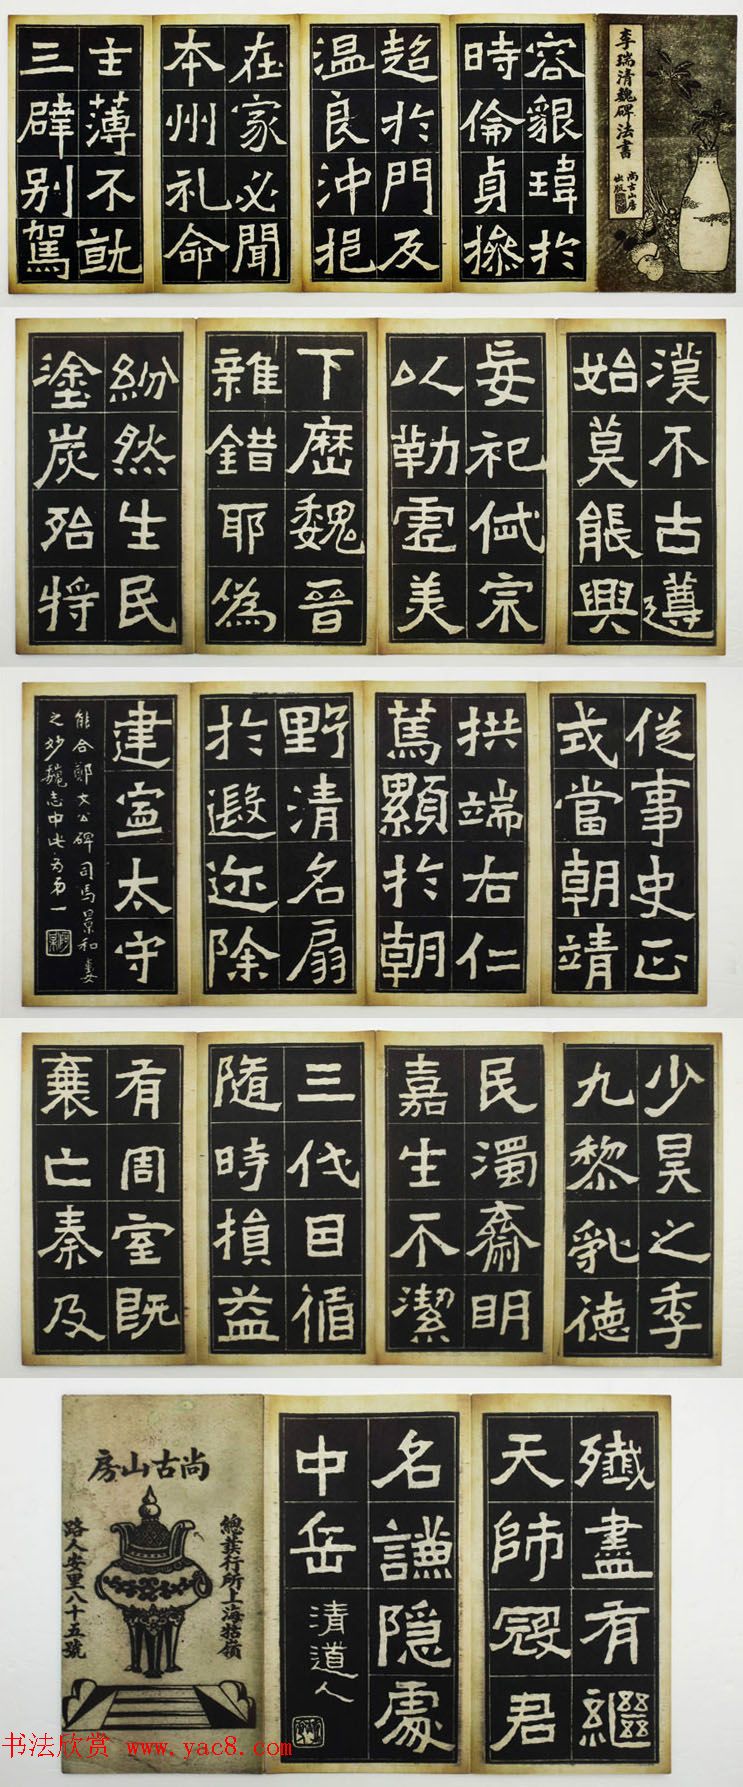 李瑞清魏碑法書
尚古山房
出版
容貌瑋於
時倫貞操
超於門及
温良沖挹
在家必聞
本州礼命
主薄不就
三辟别駕
漢不古遵
始莫能興
妄祀弑宗
以勒虛美
下歷魏晉
雜錯耶偽
紛然生民
塗炭殆將
從事史正
式當朝靖
拱端右仁
篤顯於朝
野清名扇
於遐迩除
建寧太守
能合鄭文公碑司馬景和妻
之妙魏志中此为弟一
少昊之季
九黎乱德
民濁齋明
嘉生不潔
三代因循
隨時損益
有周室既
衰亡秦及
殲盡有繼
天師寇君
名謙隱處
中岳
清道人
尚古山房
總發行所上海牯嶺
路人安里八十五號
书法欣赏 www.yac8.com